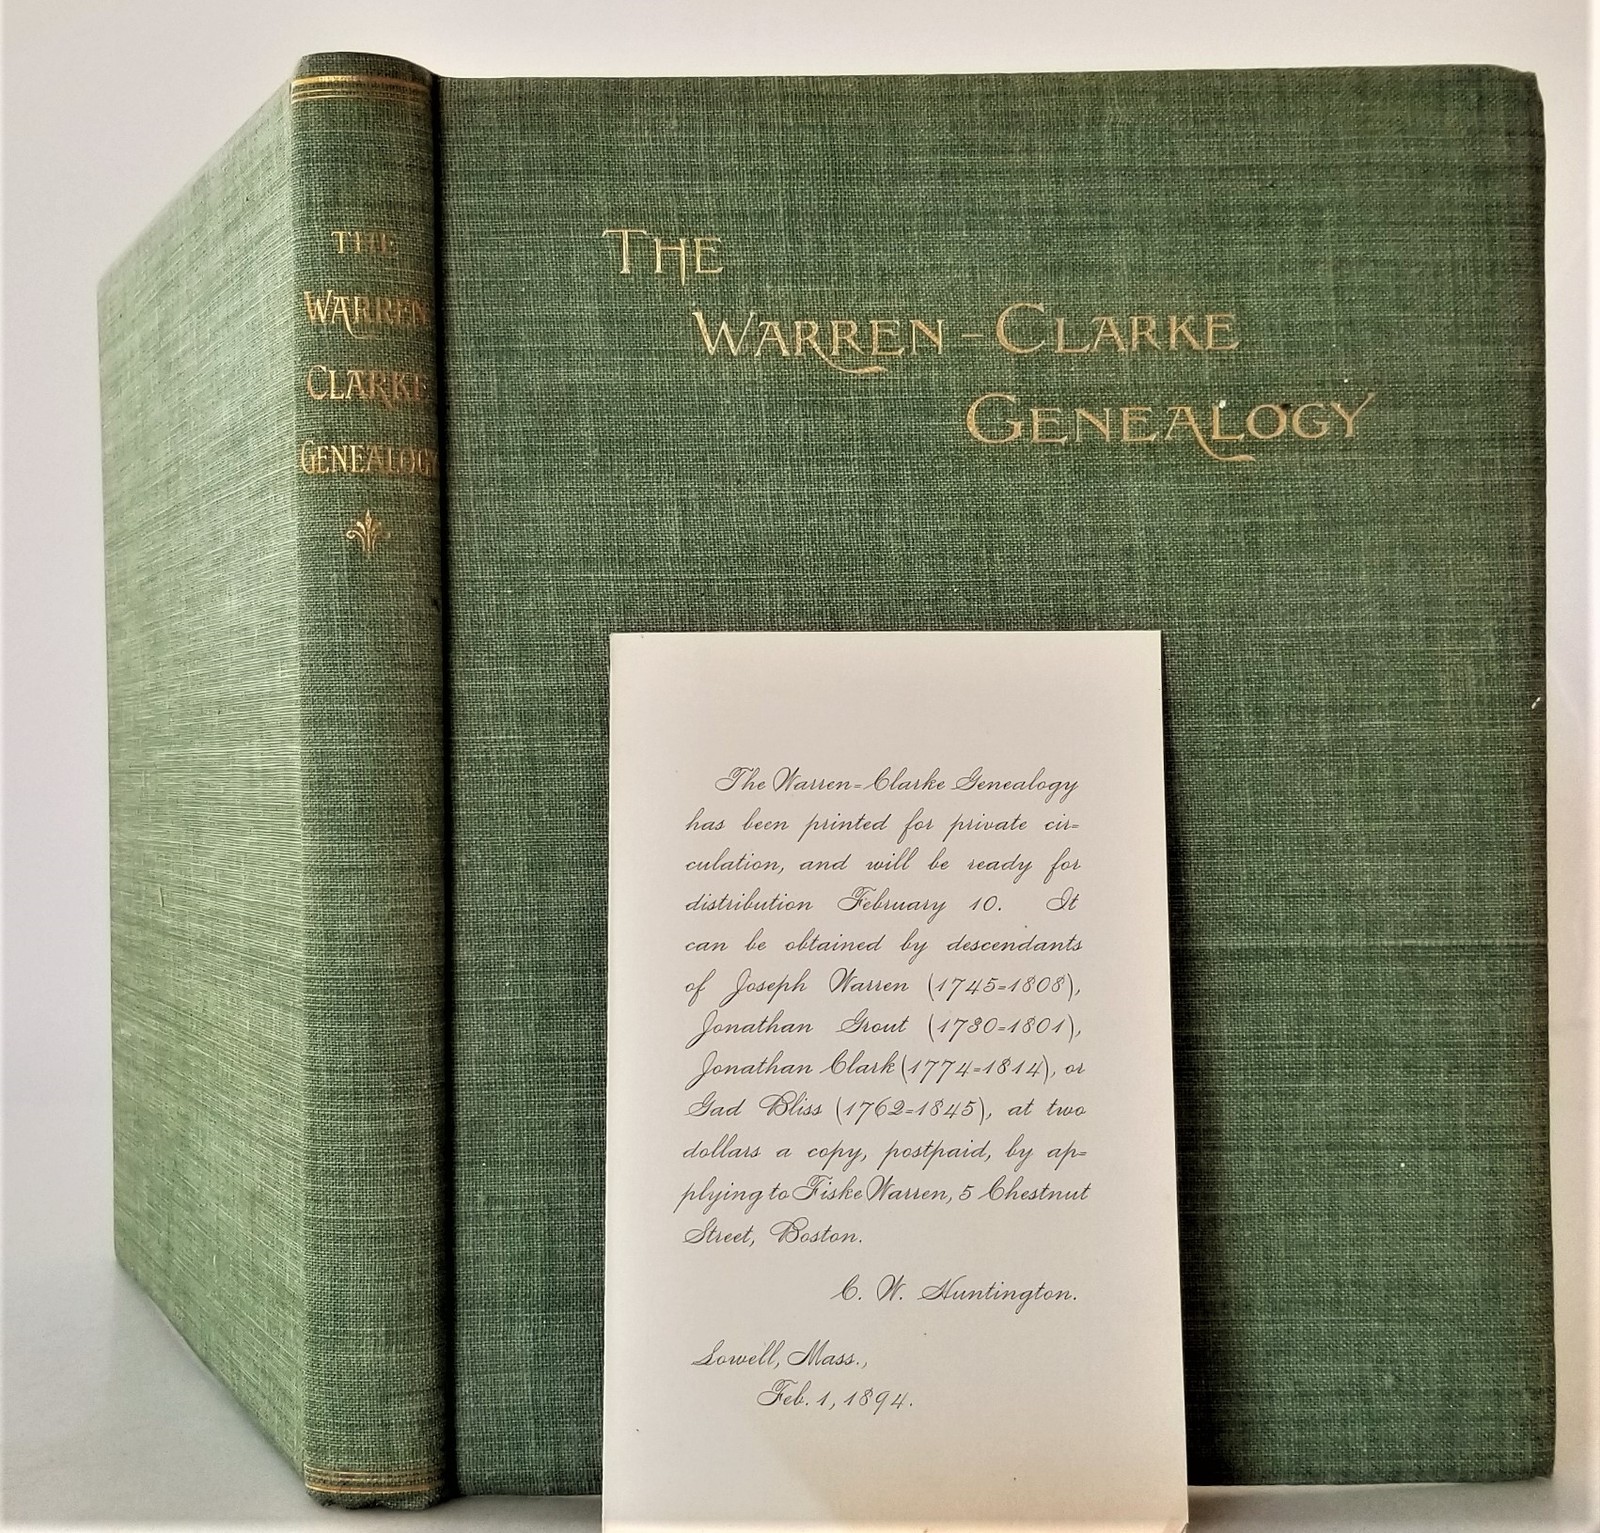 THE
WARREN
CLARKE
GENEALOGY
THE
WARREN-CLARKE
GENEALOGY
The Warren=Clarke Genealogy
has been printed for private cir=
culation, and will be ready for
distribution February 10. It
can be obtained by descendants
of Joseph Warren (1745=1808),
Jonathan Grout (1730=1801),
Jonathan Clark (1774=1814), or
Gad Bliss (1762=1845), at two
dollars a copy, postpaid, by ap=
plying to Fiske Warren, 5 Chestnut
Street, Boston.
C. W. Huntington.
Lowell, Mass.,
Feb. 1, 1894.